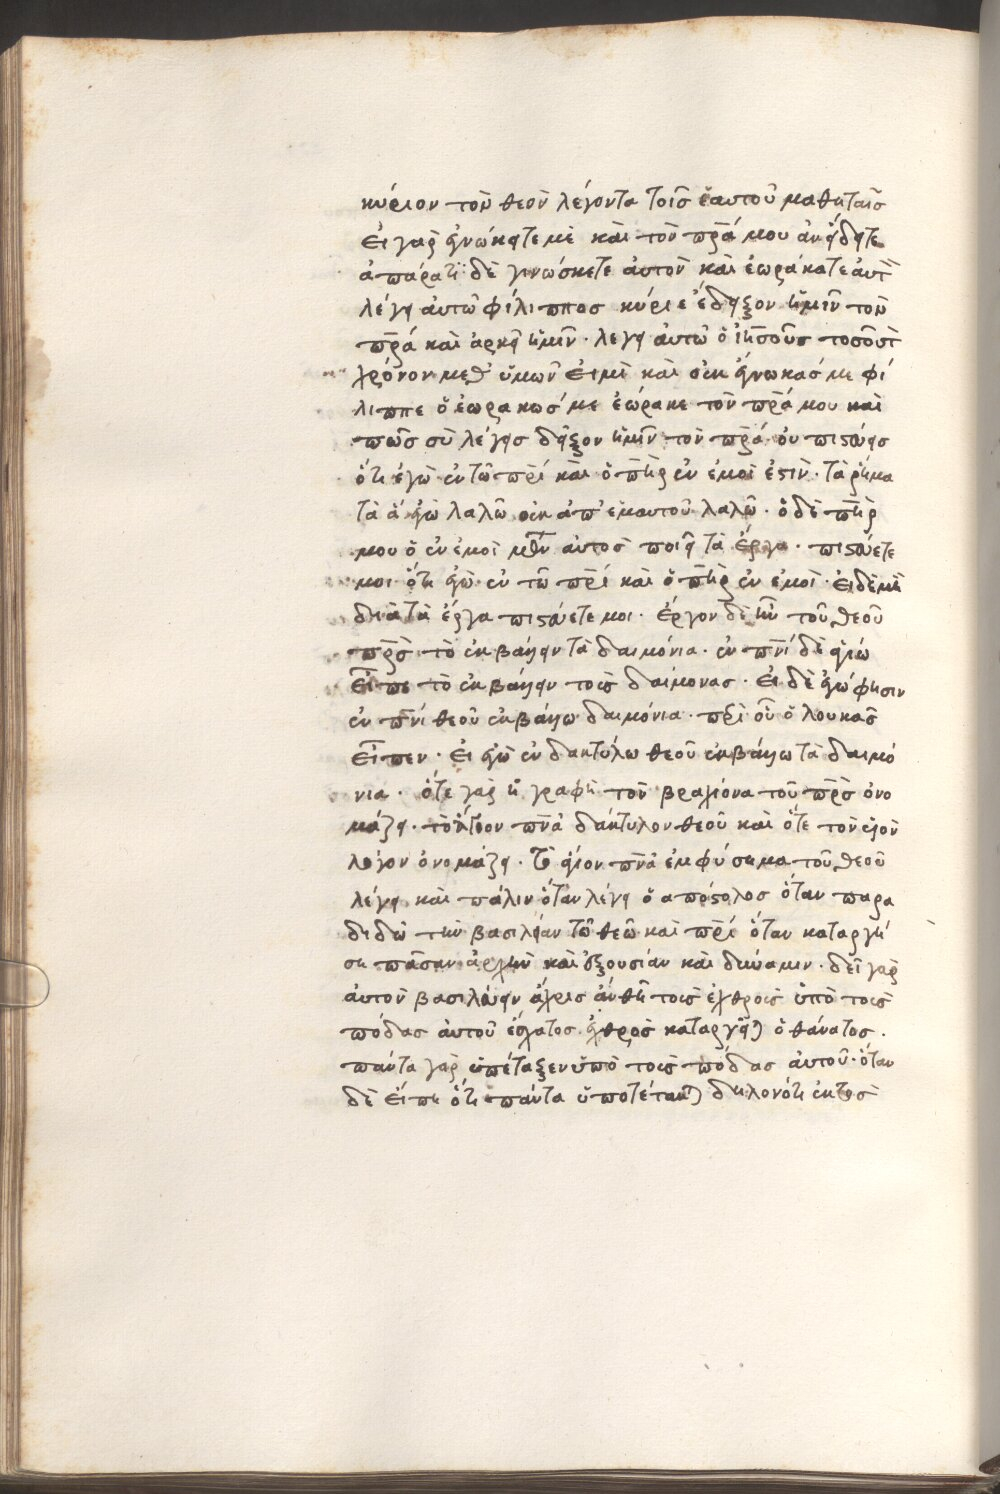 κύριον τὸν θεὸν λέγοντα τοῖς ἑαυτοῦ μαθηταῖς
εἰ γὰρ ἐγνώκατε μὲ καὶ τὸν πρα μου ἂν ᾔδητε
ἀπάρατι δὲ γινώσκετε αὐτὸν καὶ ἑωράκατε αὐτ
λέγει αὐτῶ φίλιππος κύριε δεῖξον ἡμῖν τὸν
πρα καὶ ἀρκεῖ ἡμῖν · λέγει αὐτῶ ὁ ἰησοῦς τοσοῦτ
χρόνον μεθ' ὑμῶν εἰμὶ καὶ οὐκ ἔγνωκάς με φί
λιππε ὁ ἑωρακώς με ἑώρακε τὸν πρα μου καὶ
πῶς σὺ λέγεις δεῖξον ἡμῖν τὸν πρα · οὐ πιστεύεις
ὅτι ἐγὼ ἐν τῶ πρι καὶ ὁ πηρ ἐν ἐμοί ἐστὶν · τὰ ῥήμα
τὰ ἃ ἐγὼ λαλῶ οὐκ ἀπ' ἐμαυτοῦ λαλῶ · ὁ δὲ πηρ
μου ὁ ἐν ἐμοὶ αὐτὸς ποιεῖ τὰ ἔργα · πιστεύετε
μοι ὅτι ἐγὼ ἐν τῶ πρι καὶ ὁ πηρ ἐν ἐμοὶ · εἰ δὲ μὴ
διὰ τὰ ἔργα πιστεύετέ μοι · ἔργον δὲ ἦν τοῦ θεοῦ
πρς τὸ ἐκβάλλειν τὰ δαιμόνια · ἐν πνι δὲ ἁγίω
εἶπε τὸ ἐκβάλλειν τοὺς δαίμονας · εἰ δὲ ἐγώ φησιν
ἐν πνι θεοῦ ἐκβάλλω δαιμόνια · περὶ οὗ ὁ λουκᾶς
εἶπεν · εἰ ἐγὼ ἐν δακτύλω θεοῦ ἐκβάλλω τὰ δαιμό
νια · ὅτε γὰρ ἡ γραφὴ τὸν βραχίονα τοῦ πρς ὀνο
μάζει · τὸ ἅγιον πνα δάκτυλον θεοῦ καὶ ὅτε τὸν υἱὸν
λόγον ὀνομάζει · τὸ ἅγιον πνα ἐμφύσημα τοῦ θεοῦ
λέγει καὶ πάλιν ὅταν λέγη ὁ απόστολος ὅταν παρα
διδῶ τὴν βασιλείαν τῶ θεῶ καὶ πρι ὅταν καταργή
ση πᾶσαν ἀρχὴν καὶ ἐξουσίαν καὶ δύναμιν · δεῖ γὰρ
αὐτὸν βασιλεύειν ἄχρις ἂν θῆ τοὺς ἐχθροὺς ὑπὸ τοὺς
πόδας αὐτοῦ ἔσχατος ἐχθρὸς καταργεῖται ὁ θάνατος ·
πάντα γὰρ ὑπέταξεν ὑπὸ τοὺς πόδας αὐτοῦ · ὅταν
δὲ εἴπη ὅτι πάντα ὑποτέτακται δηλονότι ἐκτὸς